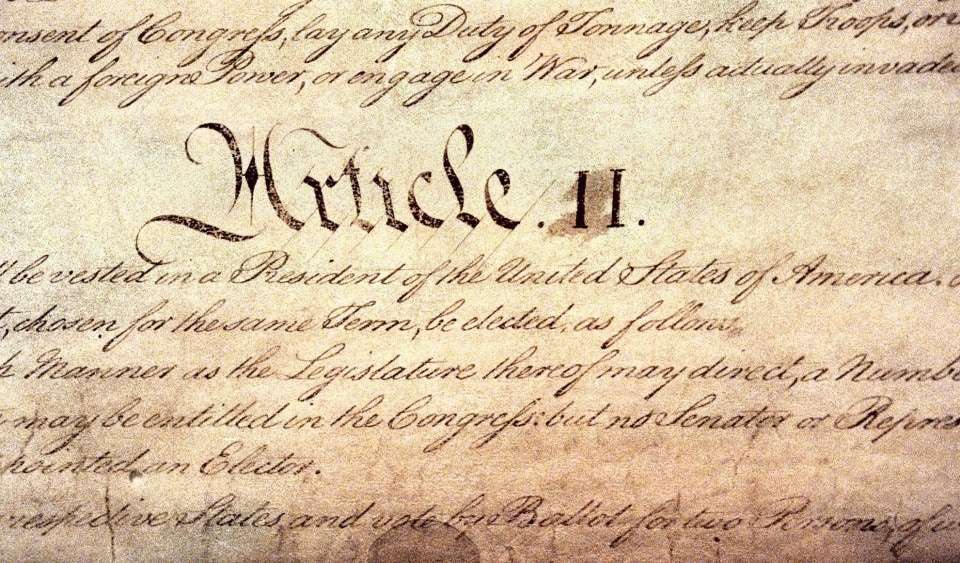 onsent of Congress, lay any Duty of Tonnage, keep Troops, or
ith a foreign Power, or engage in War, unless actually invade
Article. II.
be vested in a President of the United States of America.
t, chosen for the same Term, be elected, as follows
h Manner as the Legislature thereof may direct, a Numbe
may be entitled in the Congress: but no Senator or Repres
pointed an Elector.
respective States, and vote by Ballot for two Persons, of w